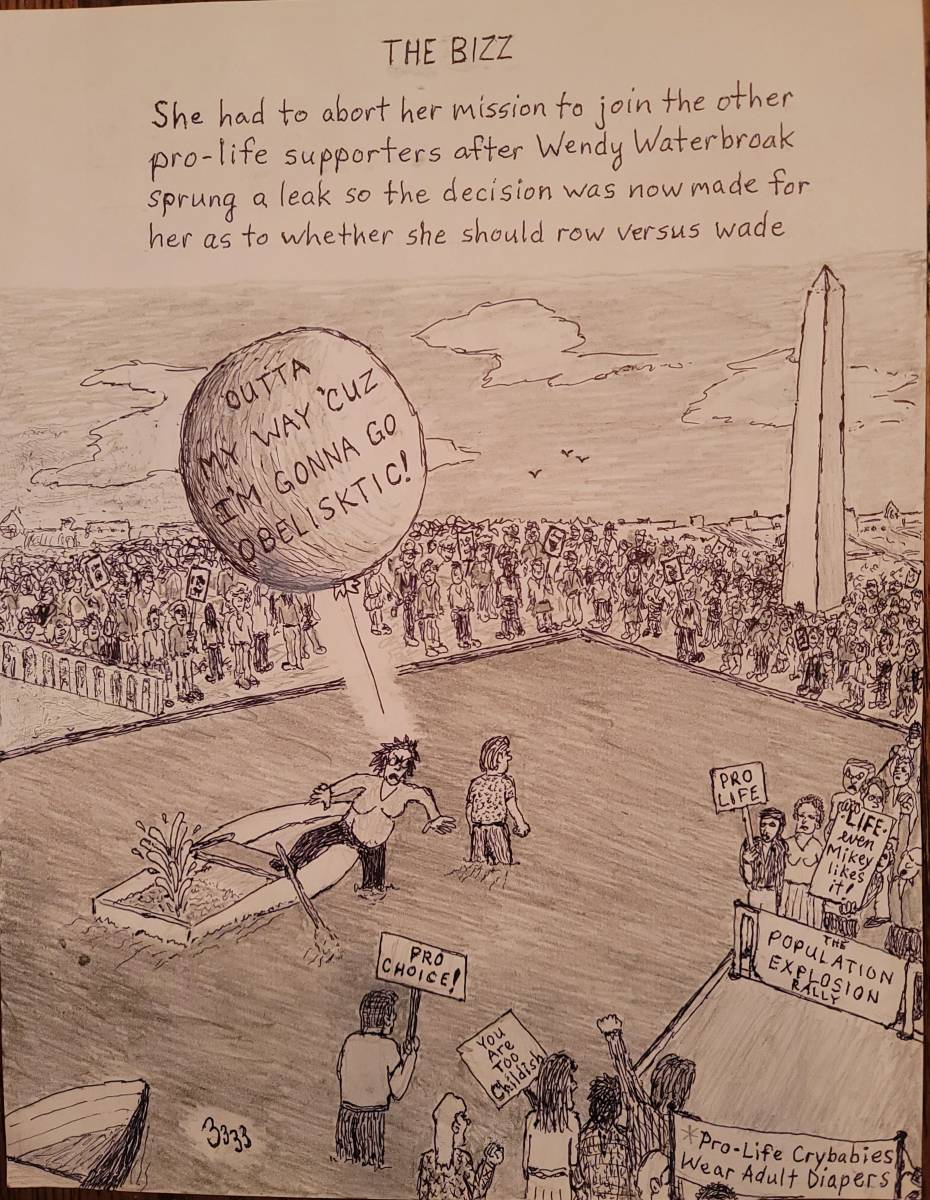 THE BIZZ
She had to abort her mission to join the other
pro-life supporters after Wendy Waterbroak
sprung a leak so the decision was now made for
her as to whether she should row versus wade
OUTTA
MY WAY 'CUZ
I'M GONNA GO
OBELISKTIC!
PRO
LIFE
"LIFE.
even
Mikey
likes
it!
THE
POPULATION
EXPLOSION
RALLY
PRO
CHOICE!
YOU
Are
Too
Childish
*Pro-Life Crybabies
Wear Adult Diapers
3333